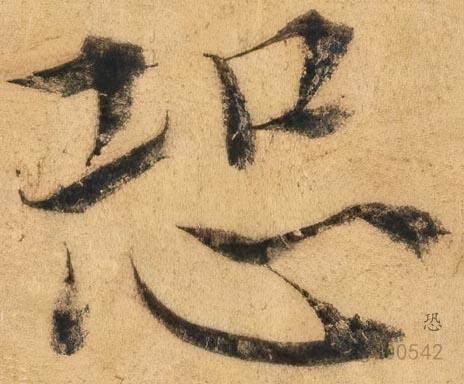 恐
恐
00542